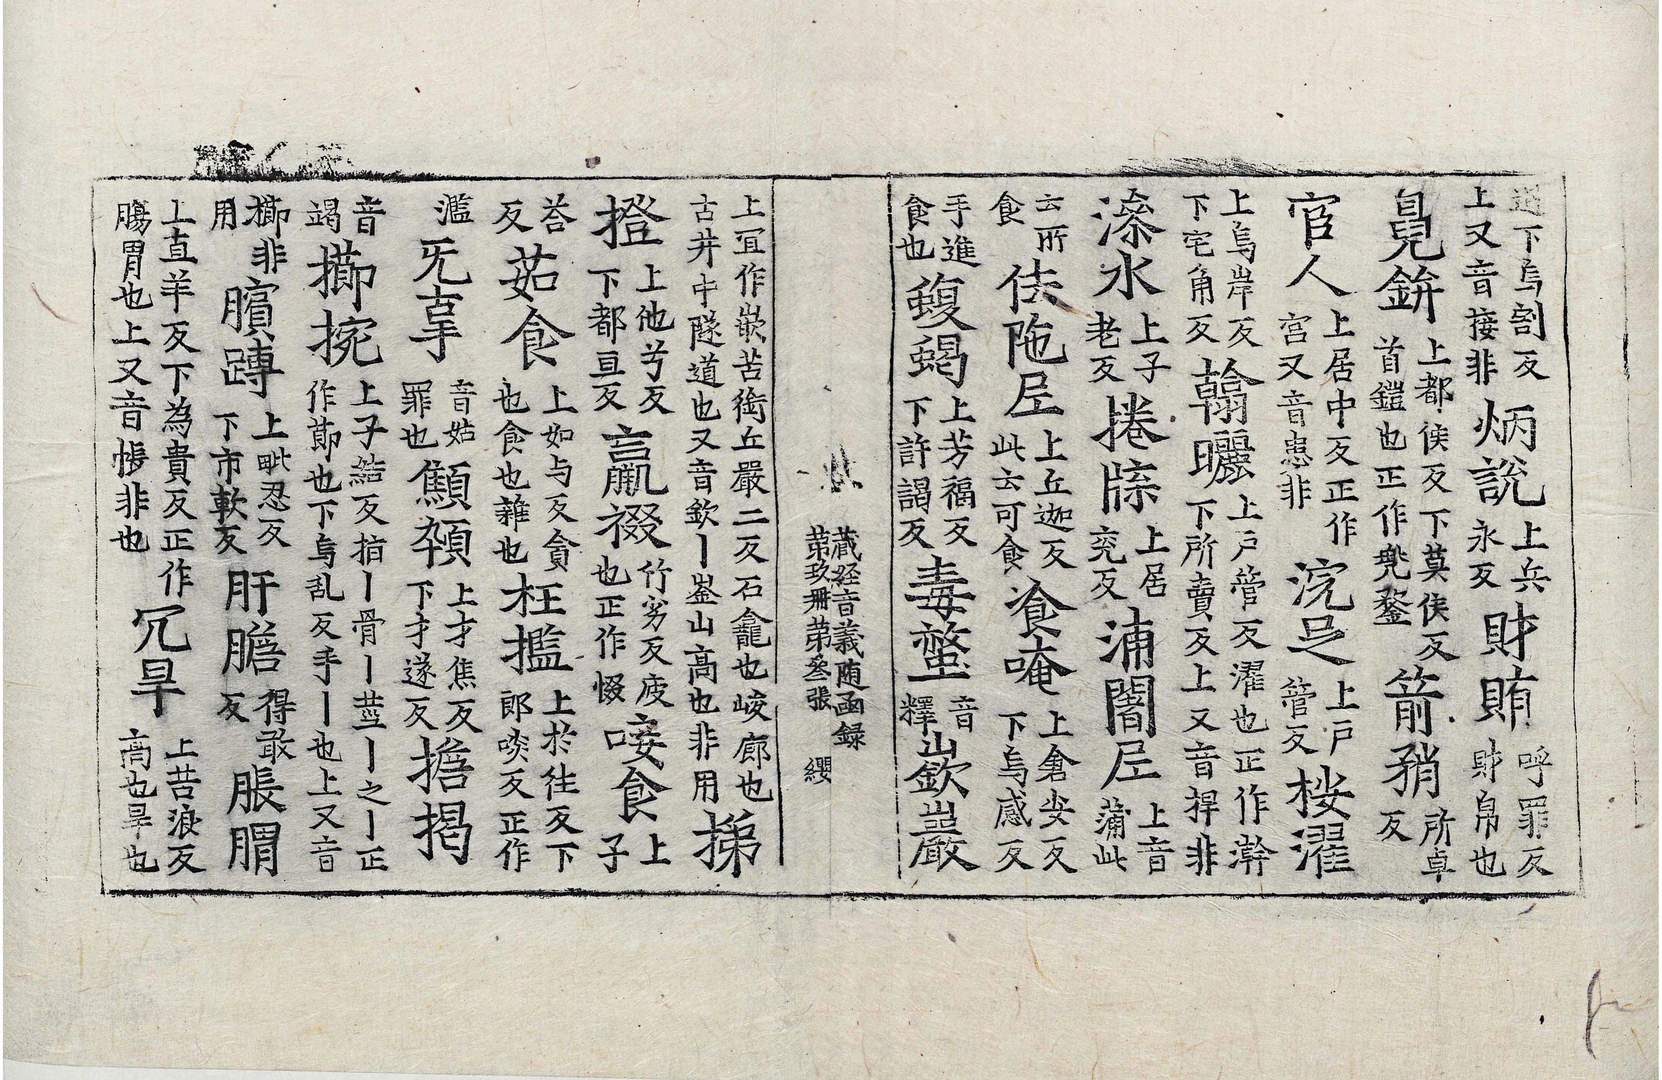 遏下烏割反上又音接非炳說上兵永反財賄呼罪反財帛也
㒵鉼上都侯反下莫侯反首鎧也正作兠鍪箭矟所卓反
官人上居中反正作宮又音患非浣足上戶管反桵濯
上烏岸反下宅角反翰曬上戶管反濯也正作澣下所賣反上又音捍非
漛水上子老反捲牍上居兖反浦闍𡰱上音蒲此
云所食佉陁𡰱上丘迦反此云可食飡唵上倉安反下烏感反
手進食也蝮蝎上芳福反下許謁反毒螫音釋嶔巖
藏經音義随函録第玖冊第叄張 纓
上冝作嵌苦銜丘嚴二反石龕也峻廊也古井中隧道也又音欽丨崟山高也非用挮
撜上他兮反下都亘反羸裰竹劣反疲也正作惙唼食上子
荅反茹食上如与反反貪也食也雜也枉㩜上於往反下郎啖反正作
濫旡辜音姑罪也顦顇上才焦反下才遂反擔揭
音竭擳捥上子結反指丨骨丨莖丨之丨正作莭也下烏乱反手丨也上又音
擳非用臏䏝上毗忍反下市軟反肝膽得敢反脹胃
上直羊反下為貴反正作膓胃也上又音帳非也冗旱上苦浪反高也旱也